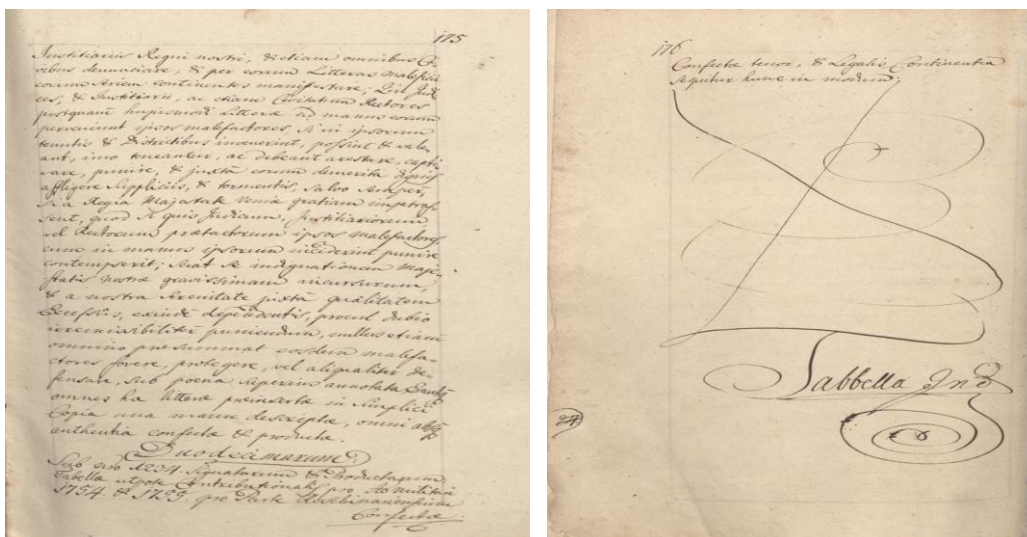 175
Justitiariis Regni nostri, & etiam omnibus Ci-
vibus denunciare, & per eorum Litteras malefici
eorum seriem continentes manifestare; Qui Judi
ces, & Justitiarii, ac etiam Civitatum Rectores
postquam hujusmodi litteræ ad manus eorum
pervenient ipsos malefactores, si in ipsorum
tenutis & Districtibus invenerint, possint & vale-
ant, imo teneantur, ac debeant arestare, capti
vare, punire, & juxta eorum demerita dignis
affligere suppliciis, & tormentis, salvo semper,
si a Regia Majestate veniæ gratiam impetras-
sent, quod si quis Judicum, Justitiariorum
vel Rectorum prætactorum ipsos malefactores,
cum in manus ipsorum inciderint punire
contempserit; sciat se indignationem Maje-
statis nostræ gravissimam incursurum,
& a nostra serenitate juxta qualitatem
Excessus, exinde dependentis, procul dubio
irremissibiliter puniendum, nullus etiam
omnino præsummat eosdem malefa-
ctores fovere, protegere, vel aliqualiter de-
fensare, sub poena superius annotata
omnes hæ litteræ præinsertæ in simplici
Copia una manu descripta, omni absq
authentia confectæ & productæ.
Duodecimarum
Sub Nro 1234. Signatarum & Productarum
Tabellæ utpote Contributionalis pro Ao militari
1754. & 1755. pro Parte
Confectæ
176
Confectæ tenor, & Legalis Continentia
sequitur hunc in modum;
Tabbella Ind
24